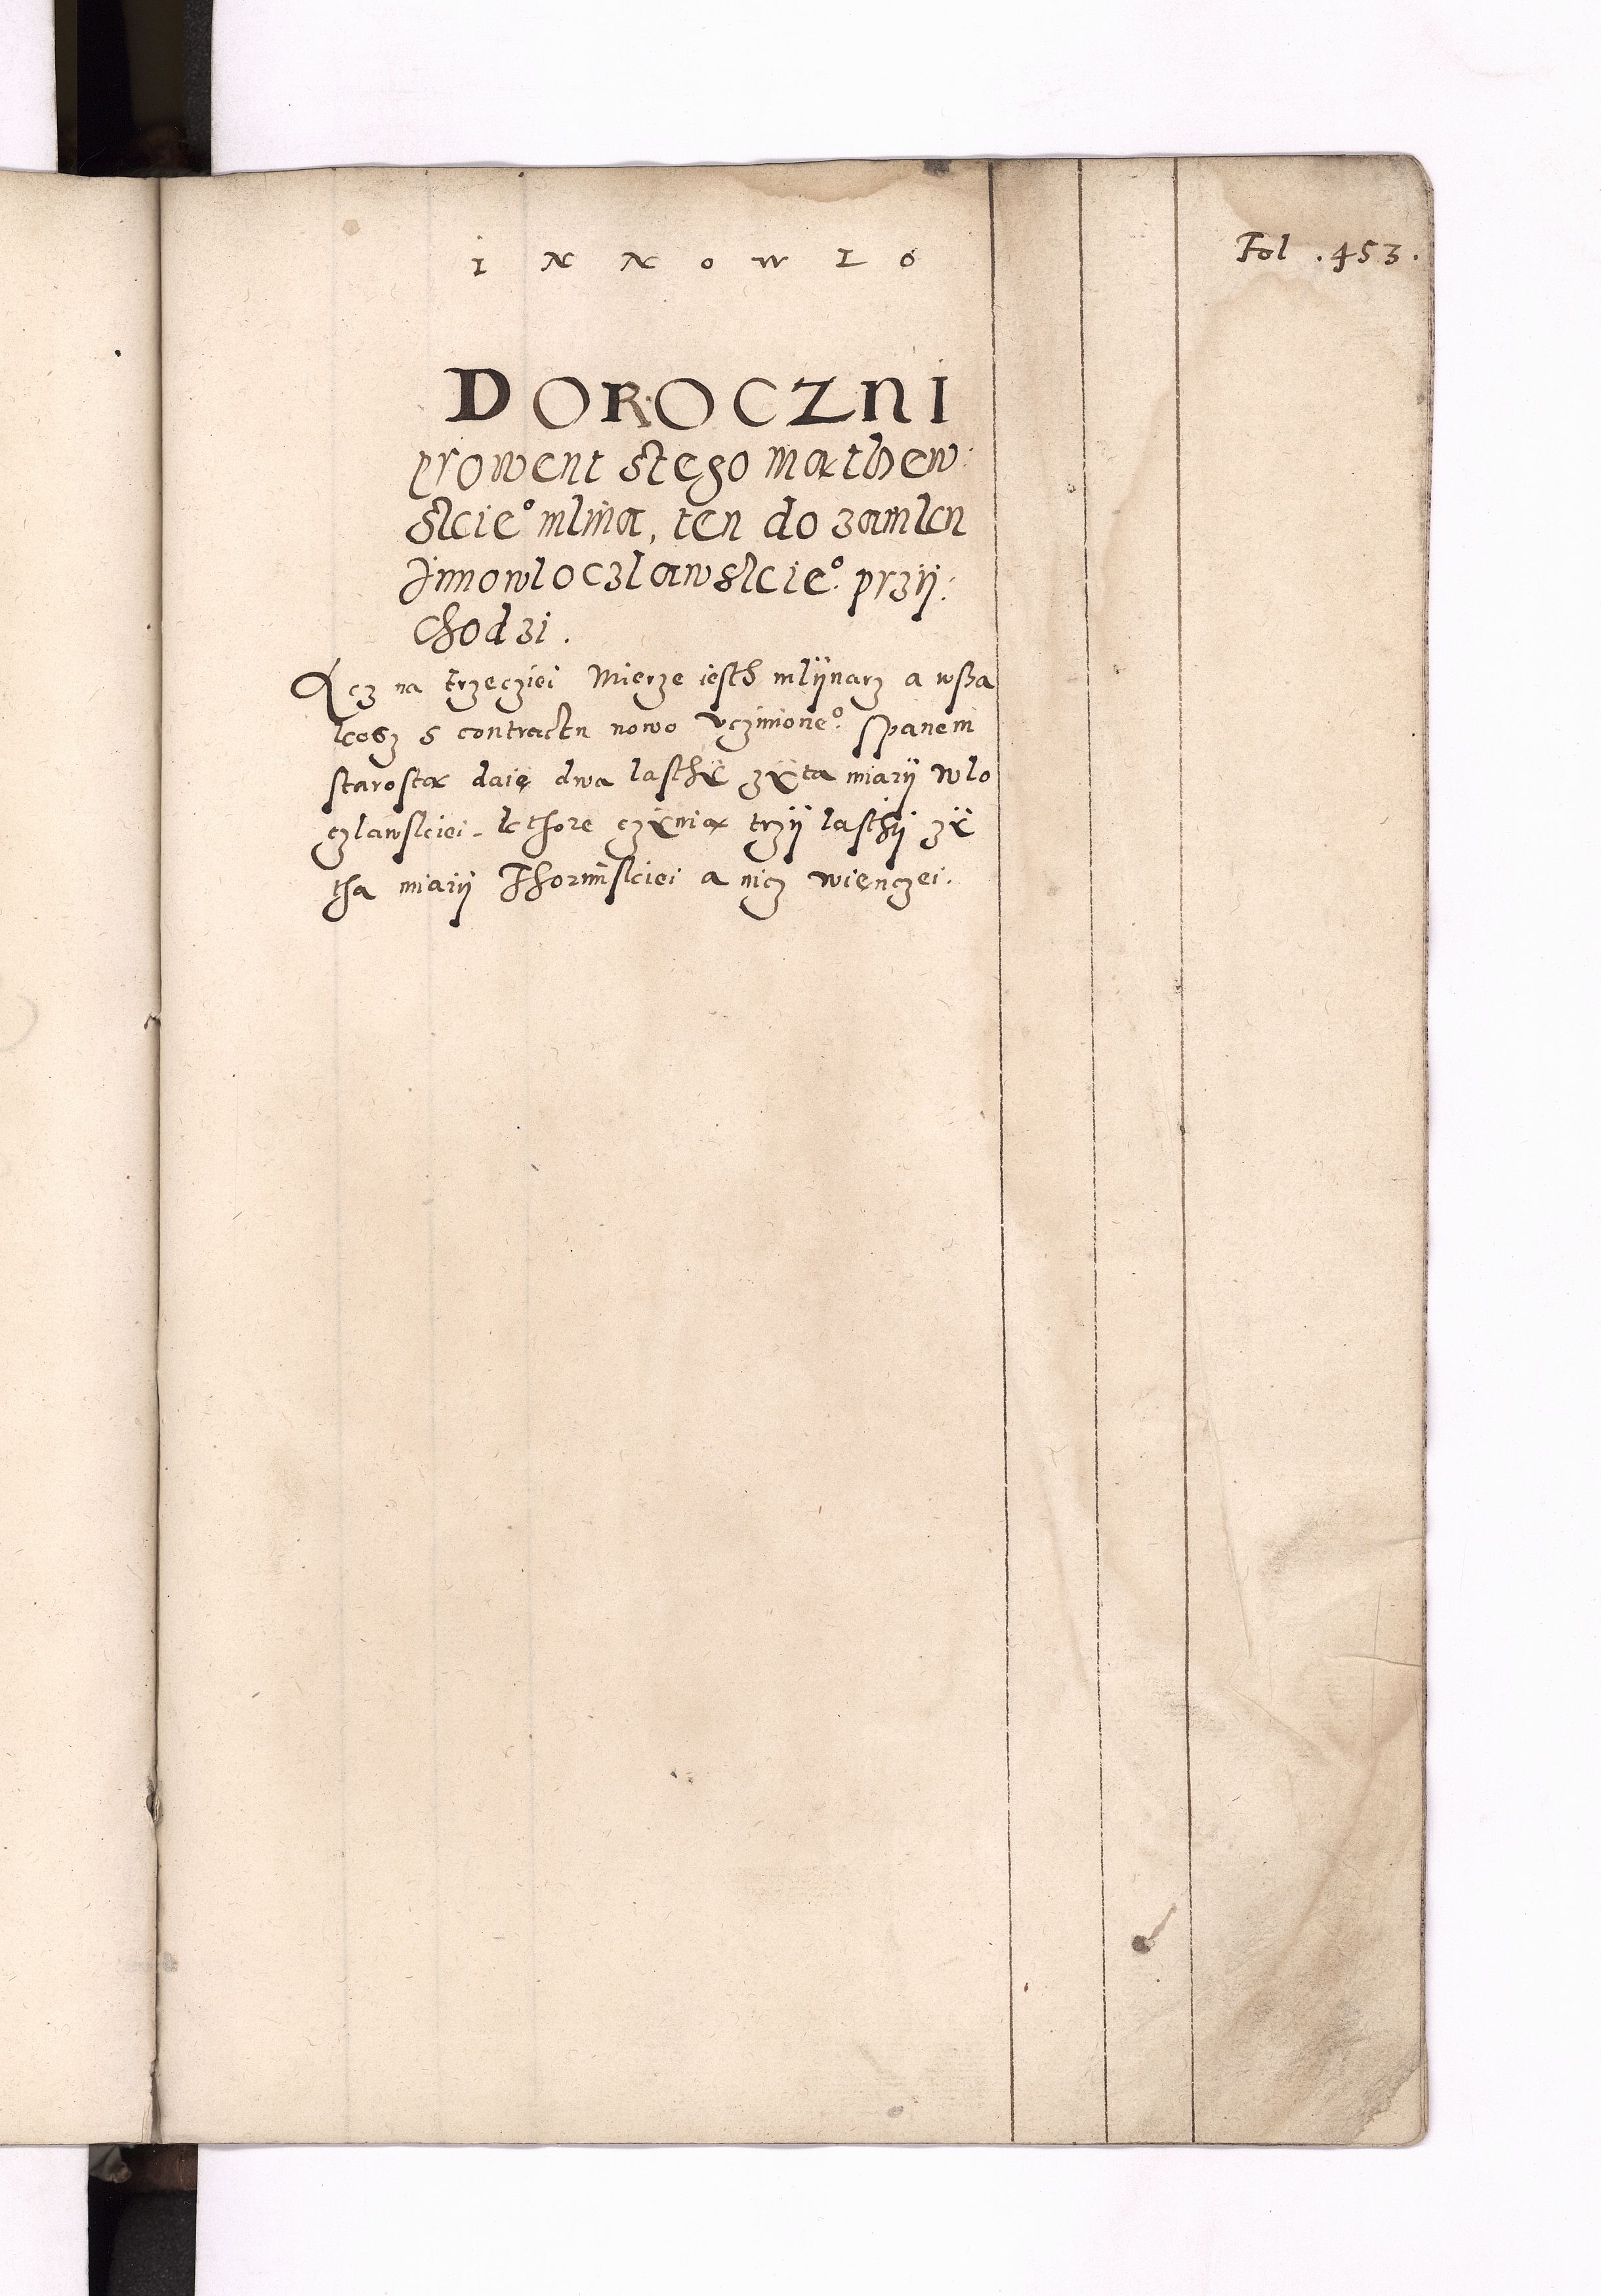 INNOWLO
Fol .453.
DOROCZNI
prowent stego mathew:
skie° mlina, ten do zamku
Jnnowloczlawskie°. przÿ:
chodzi.
Acz na trzecziei Mierze iesth mlÿnarz a wßa
kosz s contractu nowo vczinione°. spanem
starosta daię dwa lasthÿ zÿta miarÿ Wlo
czlawskiei. kthore czÿnia trzÿ lasthÿ zÿ
tha miarÿ Thorunskiei a nicz wienczei.